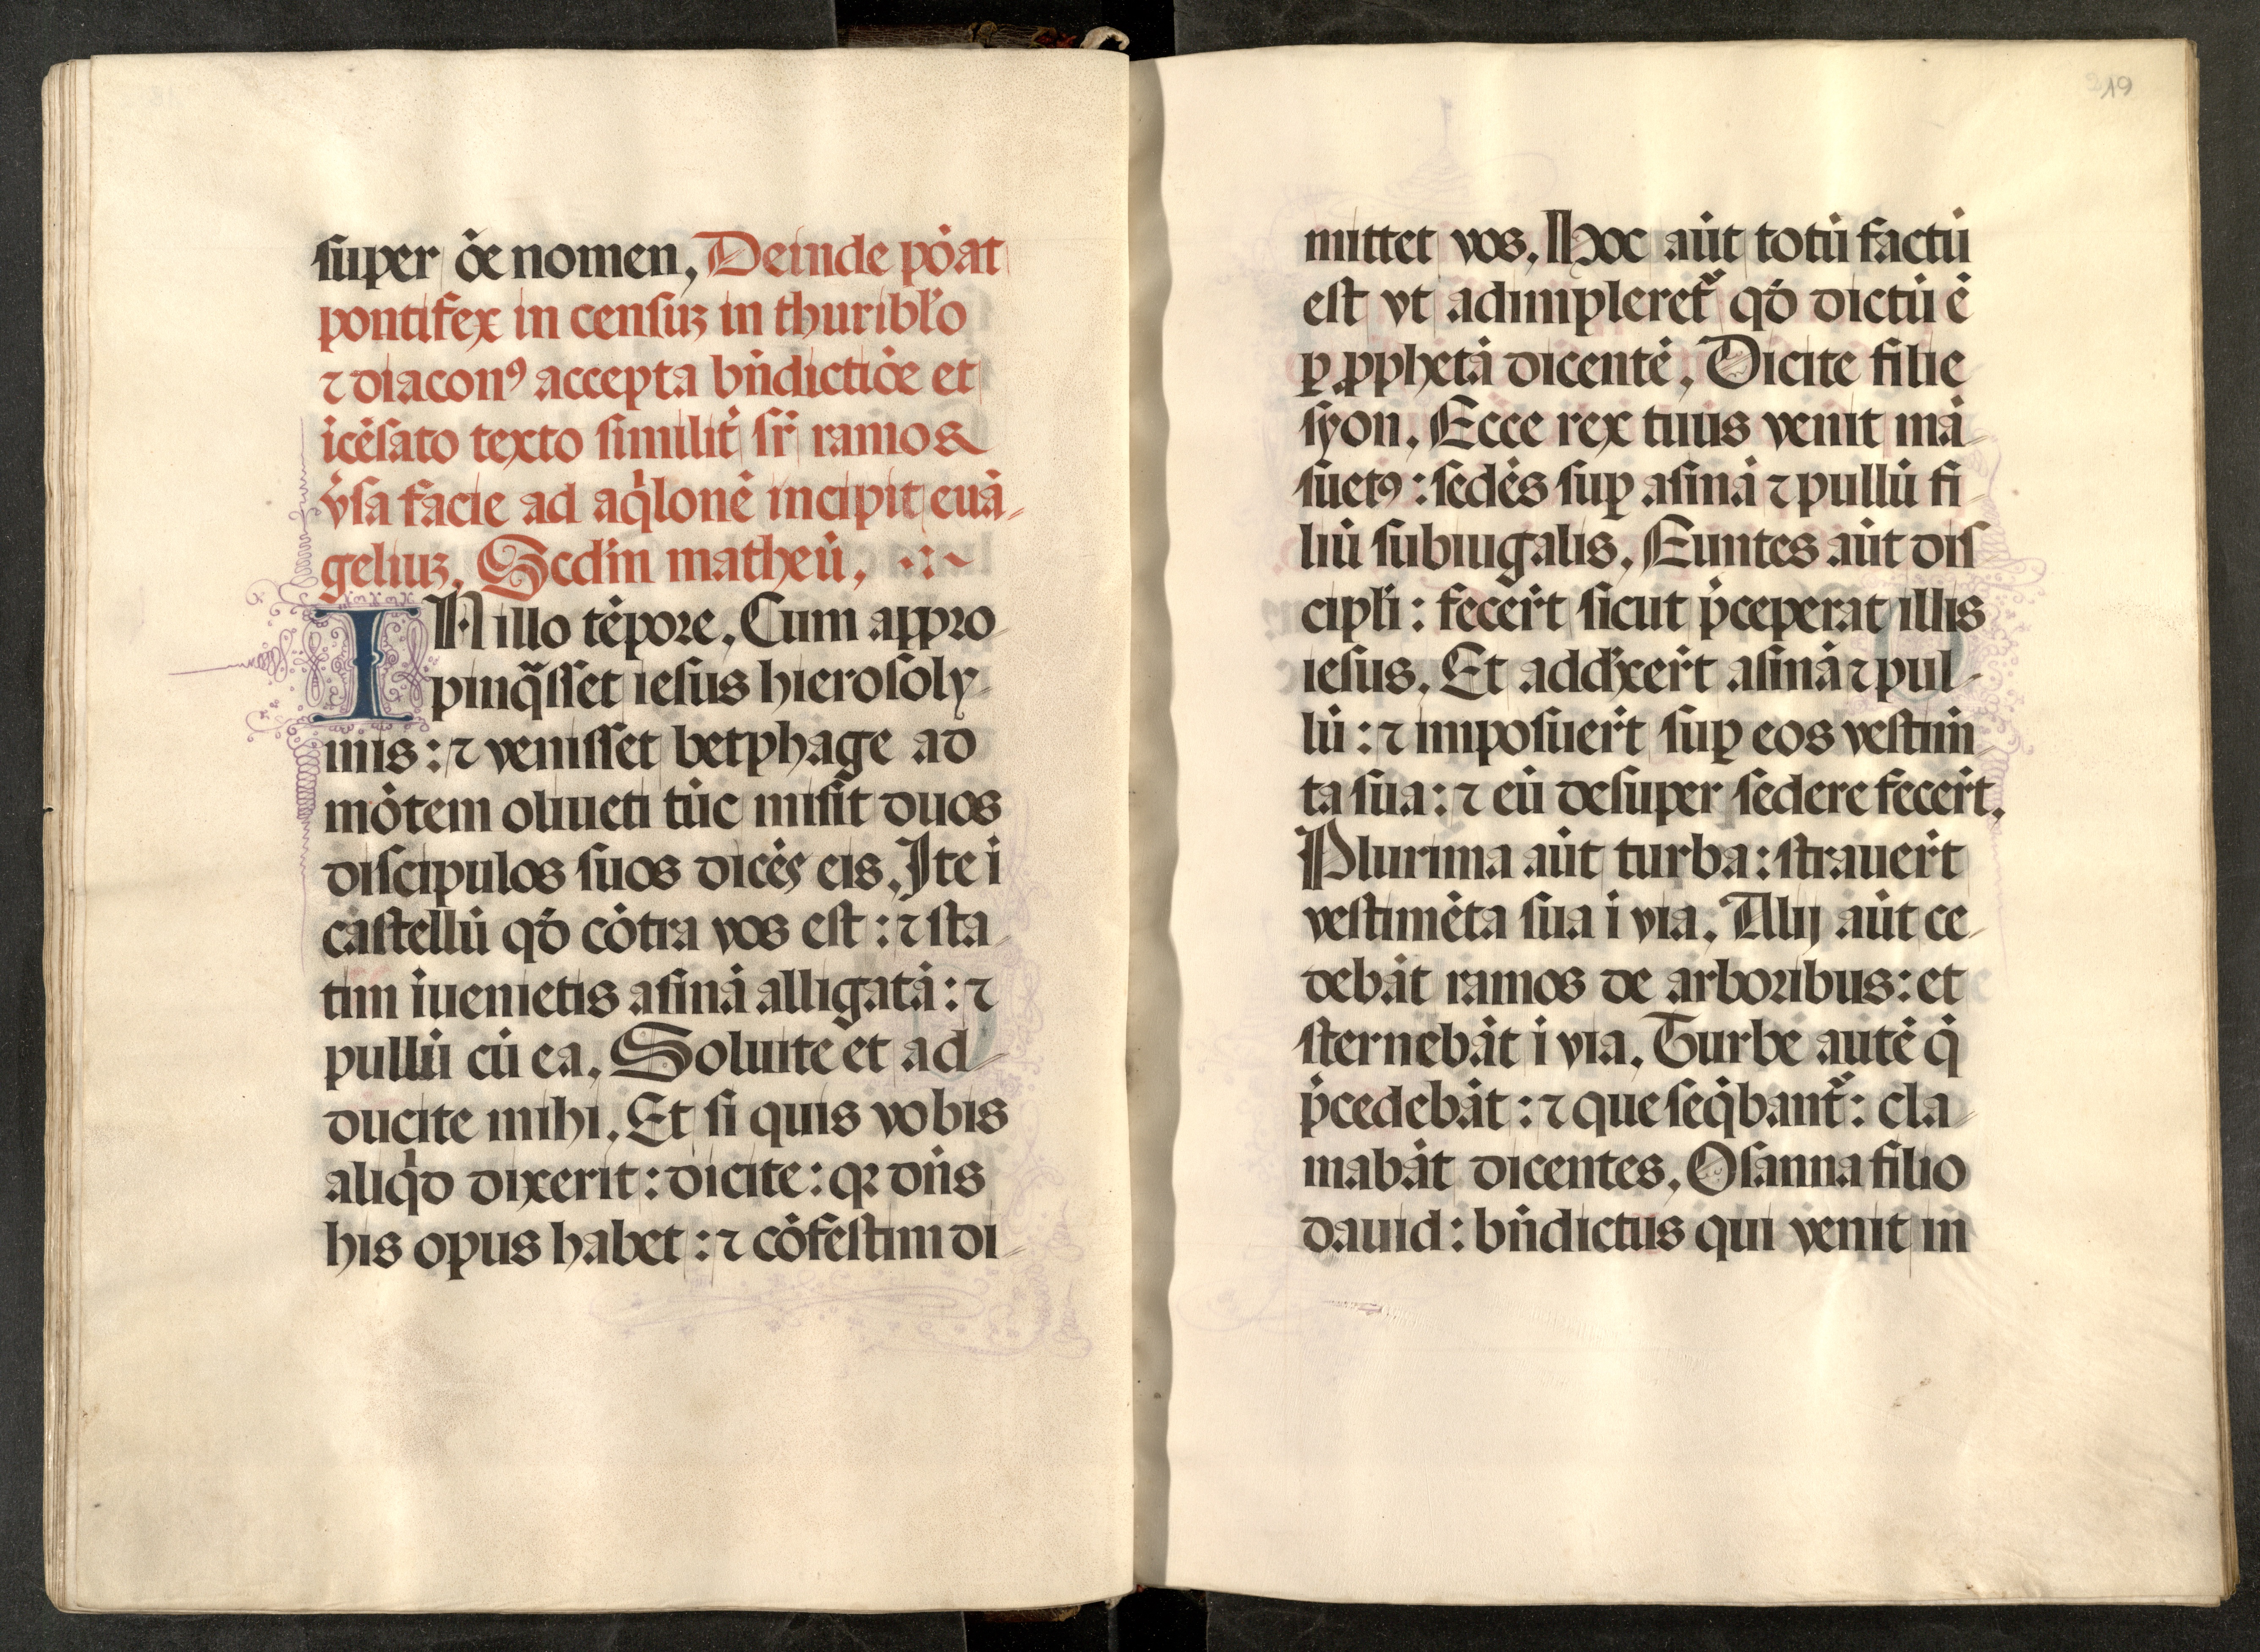 super o̅e nomen, Deinde po̅at
pontifex in censuꝫ in thuribl'o
⁊ diaconꝰ accepta bn̅dictio̅e et
ice̅sato texto similit̅ sr̅ ramos &
v̓sa facie ad aq̓lone̅ incipit eua̅-
geliuꝫ. Scd'm matheu̅,
IN illo te̅pore. Cum appro-
pinq̃sset iesus hierosoly-
mis : ⁊ venisset betphage ad
mo̅tem oliueti tu̅c misit duos
discipulos suos dice̅s eis. Ite i̅
castellu̅ qd̅ co̅tra vos est : ⁊ sta-
tim i̅uenietis asina̅ alligata̅ : ⁊
pullu̅ cu̅ ea. Soluite et ad-
ducite mihi. Et si quis vobis
aliq̓d dixerit : dicite : qꝛ dn̅s
his opus habet : ⁊ co̅festim di-
219
mittet vos. Hoc au̅t totu̅ factu̅
est vt adimpleret᷑ qd̅ dictu̅ e̅
ꝑ ꝓpheta̅ dicente̅. Dicite filie
syon. Ecce rex tuus venit ma̅-
suetꝰ : sede̅s suꝑ asina̅ ⁊ pullu̅ fi
liu̅ subiugalis. Euntes au̅t dis
cipl'i : fecer̅t sicut p̅ceperat illis
iesus. Et addu̅xer̅t asina̅ ⁊ pul-
lu̅ : ⁊ imposuer̅t suꝑ eos vestim̅-
ta sua : ⁊ eu̅ desuper sedere fecer̅t.
Plurima au̅t turba : strauer̅t
vestime̅ta sua i̅ via. Alij au̅t ce-
deba̅t ramos de arboribus : et
sterneba̅t i̅ via. Turbe aute̅ q̅
p̅cedeba̅t : ⁊ que seq̓bant᷑ : cla-
maba̅t dicentes. Osanna filio
dauid : bn̅dictus qui venit in